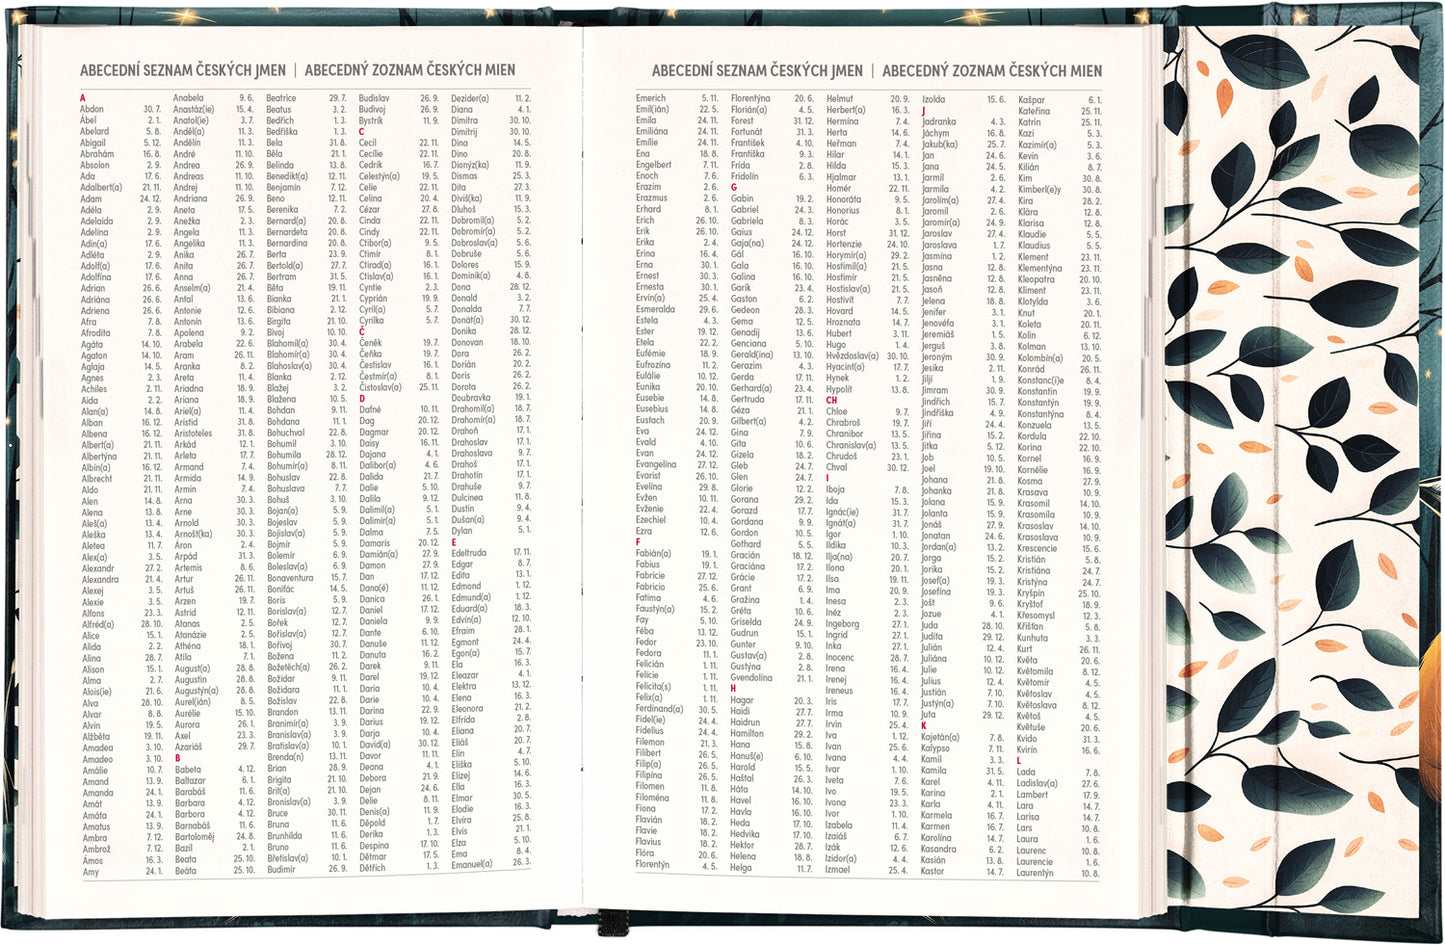 ABECEDNÍ SEZNAM ČESKÝCH JMEN | ABECEDNÝ ZOZNAM ČESKÝCH MIEN
A
Abdon 30. 7.
Ábel 2. 1.
Abelard 5. 8.
Abigail 5. 12.
Abrahám 16. 8.
Absolon 2. 9.
Ada 17. 6.
Adalbert(a) 21. 11.
Adam 24. 12.
Adéla 2. 9.
Adelaida 2. 9.
Adelína 2. 9.
Adin(a) 17. 6.
Adléta 2. 9.
Adolf(a) 17. 6.
Adolfína 17. 6.
Adrian 26. 6.
Adriána 26. 6.
Adriena 26. 6.
Afra 7. 8.
Afrodita 7. 8.
Agáta 14. 10.
Agaton 14. 10.
Aglaja 14. 5.
Agnes 2. 3.
Achiles 2. 11.
Aida 2. 2.
Alan(a) 14. 8.
Alban 16. 12.
Albena 16. 12.
Albert(a) 21. 11.
Albertýna 21. 11.
Albín(a) 16. 12.
Albrecht 21. 11.
Aldo 21. 11.
Alen 14. 8.
Alena 13. 8.
Aleš(a) 13. 4.
Aleška 13. 4.
Aletea 11. 7.
Alex(a) 3. 5.
Alexandr 27. 2.
Alexandra 21. 4.
Alexej 3. 5.
Alexie 3. 5.
Alfons 23. 3.
Alfréd(a) 28. 10.
Alice 15. 1.
Alida 2. 2.
Alina 28. 7.
Alison 15. 1.
Alma 2. 7.
Alois(ie) 21. 6.
Alva 28. 10.
Alvar 8. 8.
Alvin 19. 5.
Alžběta 19. 11.
Amadea 3. 10.
Amadeo 3. 10.
Amálie 10. 7.
Amand 13. 9.
Amanda 24. 1.
Amát 13. 9.
Amáta 24. 1.
Amatus 13. 9.
Ambra 7. 12.
Ambrož 7. 12.
Ámos 16. 3.
Amy 24. 1.
Anabela 9. 6.
Anastáz(ie) 15. 4.
Anatol(ie) 3. 7.
Anděl(a) 11. 3.
Andělín 11. 3.
André 11. 10.
Andrea 26. 9.
Andreas 11. 10.
Andrej 11. 10.
Andriana 26. 9.
Aneta 17. 5.
Anežka 2. 3.
Angela 11. 3.
Angelika 11. 3.
Anika 26. 7.
Anita 26. 7.
Anna 26. 7.
Anselm(a) 21. 4.
Antal 13. 6.
Antonie 12. 6.
Antonín 13. 6.
Apolena 9. 2.
Arabela 22. 6.
Aram 26. 11.
Aranka 8. 2.
Areta 11. 4.
Ariadna 18. 9.
Ariana 18. 9.
Ariel(a) 11. 4.
Aristid 31. 8.
Aristoteles 31. 8.
Arkád 12. 1.
Arleta 17. 7.
Armand 7. 4.
Armida 14. 9.
Armin 7. 4.
Arna 30. 3.
Arne 30. 3.
Arnold 30. 3.
Arnošt(ka) 30. 3.
Áron 2. 4.
Arpád 31. 3.
Artemis 8. 6.
Artur 26. 11.
Artuš 26. 11.
Arzen 19. 7.
Astrid 12. 11.
Atanas 2. 5.
Atanázie 2. 5.
Athéna 18. 1.
Atila 7. 1.
August(a) 28. 8.
Augustin 28. 8.
Augustýn(a) 28. 8.
Aurel(ián) 8. 5.
Aurélie 15. 10.
Aurora 26. 1.
Axel 23. 3.
Azariáš 29. 7.
B
Babeta 4. 12.
Baltazar 6. 1.
Barabáš 11. 6.
Barbara 4. 12.
Barbora 4. 12.
Barnabáš 11. 6.
Bartoloměj 24. 8.
Bazil 2. 1.
Beata 25. 10.
Beáta 25. 10.
Beatrice 29. 7.
Beatus 3. 2.
Bedřich 1. 3.
Bedřiška 1. 3.
Bela 31. 8.
Běla 21. 1.
Belinda 13. 8.
Benedikt(a) 12. 11.
Benjamín 7. 12.
Beno 12. 11.
Berenika 7. 2.
Bernard(a) 20. 8.
Bernardeta 20. 8.
Bernardina 20. 8.
Berta 23. 9.
Bertold(a) 27. 7.
Bertram 31. 5.
Běta 19. 11.
Bianka 21. 1.
Bibiana 2. 12.
Birgita 21. 10.
Bivoj 10. 10.
Blahomil(a) 30. 4.
Blahomír(a) 30. 4.
Blahoslav(a) 30. 4.
Blanka 2. 12.
Blažej 3. 2.
Blažena 10. 5.
Bohdan 9. 11.
Bohdana 11. 1.
Bohuchval 22. 8.
Bohumil 3. 10.
Bohumila 28. 12.
Bohumír(a) 8. 11.
Bohuslav 22. 8.
Bohuslava 7. 7.
Bohuš 3. 10.
Bojan(a) 5. 9.
Bojeslav 5. 9.
Bojislav(a) 5. 9.
Bojmír 5. 9.
Bolemír 6. 9.
Boleslav(a) 6. 9.
Bonaventura 15. 7.
Bonifác 14. 5.
Boris 5. 9.
Borislav(a) 12. 7.
Bořek 12. 7.
Bořislav(a) 12. 7.
Bořivoj 30. 7.
Božena 11. 2.
Božetěch(a) 26. 2.
Božidar 9. 11.
Božidara 11. 1.
Božislav 22. 8.
Brandon 13. 11.
Branimír(a) 3. 9.
Branislav(a) 3. 9.
Bratislav(a) 10. 1.
Brenda(n) 13. 11.
Brian 28. 9.
Brigita 21. 10.
Brit(a) 21. 10.
Bronislav(a) 3. 9.
Bruce 30. 11.
Bruna 11. 6.
Brunhilda 11. 6.
Bruno 11. 6.
Břetislav(a) 10. 1.
Budimír 26. 9.
Budislav 26. 9.
Budivoj 26. 9.
Bystrík 11. 9.
C
Cecil 22. 11.
Cecílie 22. 11.
Cedrik 16. 7.
Celestýn(a) 19. 5.
Celie 22. 11.
Celina 20. 4.
Cézar 27. 8.
Cinda 22. 11.
Cindy 22. 11.
Ctibor(a) 9. 5.
Ctimír 8. 1.
Ctirad(a) 16. 1.
Ctislav(a) 16. 1.
Cyntie 2. 3.
Cyprián 19. 9.
Cyril(a) 5. 7.
Cyrilka 5. 7.
Č
Čeněk 19. 7.
Čeňka 19. 7.
Čestislav 16. 1.
Čestmír(a) 8. 1.
Čistoslav(a) 25. 11.
D
Dafné 10. 11.
Dag 20. 12.
Dagmar 20. 12.
Daisy 16. 11.
Dajana 4. 1.
Dalibor(a) 4. 6.
Dalida 21. 7.
Dalie 5. 10.
Dalila 9. 12.
Dalimil(a) 5. 1.
Dalimír(a) 5. 1.
Dalma 7. 5.
Damaris 20. 12.
Damián(a) 27. 9.
Damon 27. 9.
Dan 17. 12.
Dana(é) 11. 12.
Danica 26. 1.
Daniel 17. 12.
Daniela 9. 9.
Dante 6. 10.
Danuše 11. 12.
Danuta 16. 2.
Darek 9. 11.
Darel 19. 12.
Daria 10. 4.
Darie 10. 4.
Darina 22. 9.
Darius 19. 12.
Darja 10. 4.
David(a) 30. 12.
Davor 11. 11.
Deana 4. 1.
Debora 21. 9.
Dejan 24. 6.
Delie 8. 11.
Denis(a) 11. 9.
Děpold 1. 7.
Derika 1. 3.
Despina 17. 10.
Dětmar 17. 5.
Dětřich 1. 3.
Dezider(a) 11. 2.
Diana 4. 1.
Dimitra 30. 10.
Dimitrij 30. 10.
Dina 14. 5.
Dino 20. 8.
Dionýz(ka) 11. 9.
Dismas 25. 3.
Dita 27. 3.
Diviš(ka) 11. 9.
Dluhoš 15. 3.
Dobromil(a) 5. 2.
Dobromír(a) 5. 2.
Dobroslav(a) 5. 6.
Dobruše 5. 6.
Dolores 15. 9.
Dominik(a) 4. 8.
Dona 28. 12.
Donald 3. 2.
Donalda 7. 7.
Donát(a) 30. 12.
Donika 28. 12.
Donovan 18. 10.
Dora 26. 2.
Dorián 20. 2.
Doris 26. 2.
Dorota 26. 2.
Doubravka 19. 1.
Drahomil(a) 18. 7.
Drahomír(a) 18. 7.
Drahoň 17. 1.
Drahoslav 17. 1.
Drahoslava 9. 7.
Drahoš 17. 1.
Drahotín 17. 1.
Drahuše 9. 7.
Dulcinea 11. 8.
Dustin 9. 4.
Dušan(a) 9. 4.
Dylan 5. 1.
E
Edeltruda 17. 11.
Edgar 8. 7.
Edita 13. 1.
Edmond 1. 12.
Edmund(a) 1. 12.
Eduard(a) 18. 3.
Edvín(a) 12. 10.
Efraim 28. 1.
Egmont 24. 4.
Egon(a) 15. 7.
Ela 16. 3.
Eleazar 4. 1.
Elektra 13. 12.
Elena 16. 3.
Eleonora 21. 2.
Elfrída 2. 8.
Eliana 20. 7.
Eliáš 20. 7.
Elin 4. 7.
Eliška 5. 10.
Elizej 14. 6.
Ella 16. 3.
Elmar 30. 5.
Elodie 16. 3.
Elvíra 25. 8.
Elvis 21. 1.
Elza 5. 10.
Ema 8. 4.
Emanuel(a) 26. 3.
ABECEDNÍ SEZNAM ČESKÝCH JMEN | ABECEDNÝ ZOZNAM ČESKÝCH MIEN
Emerich 5. 11.
Emil(ián) 22. 5.
Emila 24. 11.
Emiliána 24. 11.
Emílie 24. 11.
Ena 18. 8.
Engelbert 7. 11.
Enoch 7. 6.
Erazim 2. 6.
Erazmus 2. 6.
Erhard 8. 1.
Erich 26. 10.
Erik 26. 10.
Erika 2. 4.
Erina 16. 4.
Erna 30. 1.
Ernest 30. 3.
Ernesta 30. 1.
Ervín(a) 25. 4.
Esmeralda 29. 6.
Estela 4. 3.
Ester 19. 12.
Etela 22. 2.
Eufémie 18. 9.
Eufrozína 11. 2.
Eulálie 10. 12.
Eunika 20. 10.
Eusebie 14. 8.
Eusebius 14. 8.
Eustach 20. 9.
Eva 24. 12.
Evald 4. 10.
Evan 24. 12.
Evangelína 27. 12.
Evarist 26. 10.
Evelína 29. 8.
Evžen 10. 11.
Evženie 22. 4.
Ezechiel 10. 4.
Ezra 12. 6.
F
Fabián(a) 19. 1.
Fabius 19. 1.
Fabricie 27. 12.
Fabricio 25. 6.
Fatima 4. 6.
Faustýn(a) 15. 2.
Fay 5. 10.
Féba 13. 12.
Fedor 23. 10.
Fedora 11. 1.
Felicián 1. 11.
Felicie 1. 11.
Felicita(s) 1. 11.
Felix(a) 1. 11.
Ferdinand(a) 30. 5.
Fidel(ie) 24. 4.
Fidelius 24. 4.
Filemon 21. 3.
Filibert 26. 5.
Filip(a) 26. 5.
Filipína 26. 5.
Filomen 11. 8.
Filoména 11. 8.
Fiona 17. 2.
Flavián 18. 2.
Flavie 18. 2.
Flavius 18. 2.
Flóra 20. 6.
Florentýn 4. 5.
Florentýna 20. 6.
Florián(a) 4. 5.
Forest 31. 12.
Fortunát 31. 3.
František 4. 10.
Františka 9. 3.
Frida 2. 8.
Fridolín 6. 3.
G
Gabin 19. 2.
Gabriel 24. 3.
Gabriela 8. 3.
Gaius 24. 12.
Gaja(na) 24. 12.
Gál 16. 10.
Gala 16. 10.
Galina 16. 10.
Garik 23. 4.
Gaston 6. 2.
Gedeon 28. 3.
Gema 12. 5.
Genadij 13. 6.
Genciana 5. 10.
Gerald(ina) 13. 10.
Gerazim 4. 3.
Gerda 17. 11.
Gerhard(a) 23. 4.
Gertruda 17. 11.
Géza 21. 1.
Gilbert(a) 4. 2.
Gina 7. 9.
Gita 10. 6.
Gizela 18. 2.
Gleb 24. 7.
Glen 24. 7.
Glorie 12. 2.
Gorana 29. 2.
Gorazd 17. 7.
Gordana 9. 9.
Gordon 10. 5.
Gothard 5. 5.
Gracián 18. 12.
Graciána 17. 2.
Grácie 17. 2.
Grant 6. 9.
Gražina 1. 4.
Gréta 10. 6.
Griselda 24. 9.
Gudrun 15. 1.
Gunter 9. 10.
Gustav(a) 2. 8.
Gustýna 2. 8.
Gvendolína 21. 1.
H
Hagar 20. 3.
Haidi 27. 7.
Haidrun 27. 7.
Hamilton 29. 2.
Hana 15. 8.
Hanuš(e) 6. 10.
Harold 15. 5.
Haštal 26. 3.
Háta 14. 10.
Havel 16. 10.
Havla 16. 10.
Heda 17. 10.
Hedvika 17. 10.
Hektor 28. 7.
Helena 18. 8.
Helga 11. 7.
Helmut 20. 9.
Herbert(a) 16. 3.
Hermína 7. 4.
Herta 14. 6.
Heřman 7. 4.
Hilar 14. 1.
Hilda 15. 3.
Hjalmar 13. 1.
Homér 22. 11.
Honoráta 9. 5.
Honorius 8. 1.
Horác 3. 5.
Horst 31. 12.
Hortenzie 24. 10.
Horymír(a) 29. 2.
Hostimil(a) 21. 5.
Hostimír 21. 5.
Hostislav(a) 21. 5.
Hostivít 7. 7.
Hovard 14. 5.
Hroznata 14. 7.
Hubert 3. 11.
Hugo 1. 4.
Hvězdoslav(a) 30. 10.
Hyacint(a) 17. 7.
Hynek 1. 2.
Hypolit 13. 8.
CH
Chloe 9. 7.
Chrabroš 19. 7.
Chranibor 13. 5.
Chranislav(a) 13. 5.
Chrudoš 23. 1.
Chval 30. 12.
I
Iboja 7. 8.
Ida 15. 3.
Ignác(ie) 31. 7.
Ignát(a) 31. 7.
Igor 1. 10.
Ildika 10. 3.
Ilja(na) 20. 7.
Ilona 20. 1.
Ilsa 19. 11.
Ima 20. 9.
Inesa 2. 3.
Inéz 2. 3.
Ingeborg 27. 1.
Ingrid 27. 1.
Inka 27. 1.
Inocenc 28. 7.
Irena 16. 4.
Irenej 16. 4.
Ireneus 16. 4.
Iris 17. 7.
Irma 10. 9.
Irvin 25. 4.
Iva 1. 12.
Ivan 25. 6.
Ivana 4. 4.
Ivar 1. 10.
Iveta 7. 6.
Ivo 19. 5.
Ivona 23. 3.
Ivor 1. 10.
Izabela 11. 4.
Izaiáš 6. 7.
Izák 12. 6.
Izidor(a) 4. 4.
Izmael 25. 4.
Izolda 15. 6.
J
Jadranka 4. 3.
Jáchym 16. 8.
Jakub(ka) 25. 7.
Jan 24. 6.
Jana 24. 5.
Jarmil 2. 6.
Jarmila 4. 2.
Jarolím(a) 27. 4.
Jaromil 2. 6.
Jaromír(a) 24. 9.
Jaroslav 27. 4.
Jaroslava 1. 7.
Jasmína 1. 2.
Jasna 12. 8.
Jasněna 12. 8.
Jasoň 12. 8.
Jelena 18. 8.
Jenifer 3. 1.
Jenovéfa 3. 1.
Jeremiáš 1. 5.
Jerguš 3. 8.
Jeroným 30. 9.
Jesika 2. 11.
Jiljí 1. 9.
Jimram 30. 9.
Jindřich 15. 7.
Jindřiška 4. 9.
Jiří 24. 4.
Jiřina 15. 2.
Jitka 5. 12.
Job 10. 5.
Joel 19. 10.
Johana 21. 8.
Johanka 21. 8.
Jolana 15. 9.
Jolanta 15. 9.
Jonáš 27. 9.
Jonatan 24. 6.
Jordan(a) 13. 2.
Jorga 15. 2.
Jorika 15. 2.
Josef(a) 19. 3.
Josefína 19. 3.
Jošt 9. 6.
Jozue 4. 1.
Juda 28. 10.
Judita 29. 12.
Julián 12. 4.
Juliána 10. 12.
Julie 10. 12.
Julius 12. 4.
Justián 7. 10.
Justýn(a) 7. 10.
Juta 29. 12.
K
Kajetán(a) 7. 8.
Kalypso 7. 11.
Kamil 3. 3.
Kamila 31. 5.
Karel 4. 11.
Karina 2. 1.
Karla 4. 11.
Karmela 16. 7.
Karmen 16. 7.
Karolína 14. 7.
Kasandra 6. 2.
Kasián 13. 8.
Kastor 14. 7.
Kašpar 6. 1.
Kateřina 25. 11.
Katrin 25. 11.
Kazi 5. 3.
Kazimír(a) 5. 3.
Kevin 3. 6.
Kilián 8. 7.
Kim 30. 8.
Kimberl(e)y 30. 8.
Kira 28. 2.
Klára 12. 8.
Klarisa 12. 8.
Klaudie 5. 5.
Klaudius 5. 5.
Klement 23. 11.
Klementýna 23. 11.
Kleopatra 20. 10.
Kliment 23. 11.
Klotylda 3. 6.
Knut 20. 1.
Koleta 20. 11.
Kolin 6. 12.
Kolman 13. 10.
Kolombín(a) 20. 5.
Konrád 26. 11.
Konstanc(i)e 8. 4.
Konstantin 19. 9.
Konstantýn 19. 9.
Konstantýna 8. 4.
Konzuela 13. 5.
Kordula 22. 10.
Korina 22. 10.
Kornel 16. 9.
Kornélie 16. 9.
Kosma 27. 9.
Krasava 10. 9.
Krasomil 14. 10.
Krasomila 10. 9.
Krasoslav 14. 10.
Krasoslava 10. 9.
Krescencie 15. 6.
Kristián 5. 8.
Kristiána 24. 7.
Kristýna 24. 7.
Kryšpín 25. 10.
Kryštof 18. 9.
Křesomysl 12. 3.
Křišťan 5. 8.
Kunhuta 3. 3.
Kurt 26. 11.
Květa 20. 6.
Květomila 8. 12.
Květomír 4. 5.
Květoslav 4. 5.
Květoslava 8. 12.
Květoš 4. 5.
Květuše 20. 6.
Kvido 31. 3.
Kvirín 16. 6.
L
Lada 7. 8.
Ladislav(a) 27. 6.
Lambert 17. 9.
Lara 14. 7.
Larisa 14. 7.
Lars 10. 8.
Laura 1. 6.
Laurenc 10. 8.
Laurencie 1. 6.
Laurentýn 10. 8.